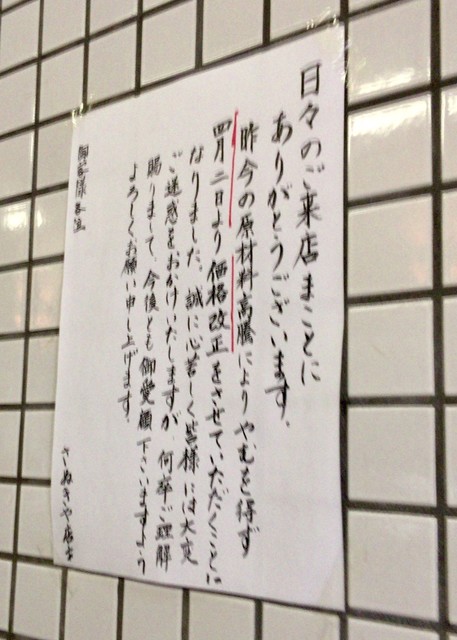 日々のご来店まことに
ありがとうございます。
昨今の原材料高騰によりやむを得ず
四月二日より価格改正をさせていただくことに
なりました。誠に心苦しく皆様には大変
ご迷惑をおかけいたしますが、何卒ご理解
賜りまして、今後とも御愛顧下さいますよう
よろしくお願い申し上げます。
御客様各位
さぬきや店主